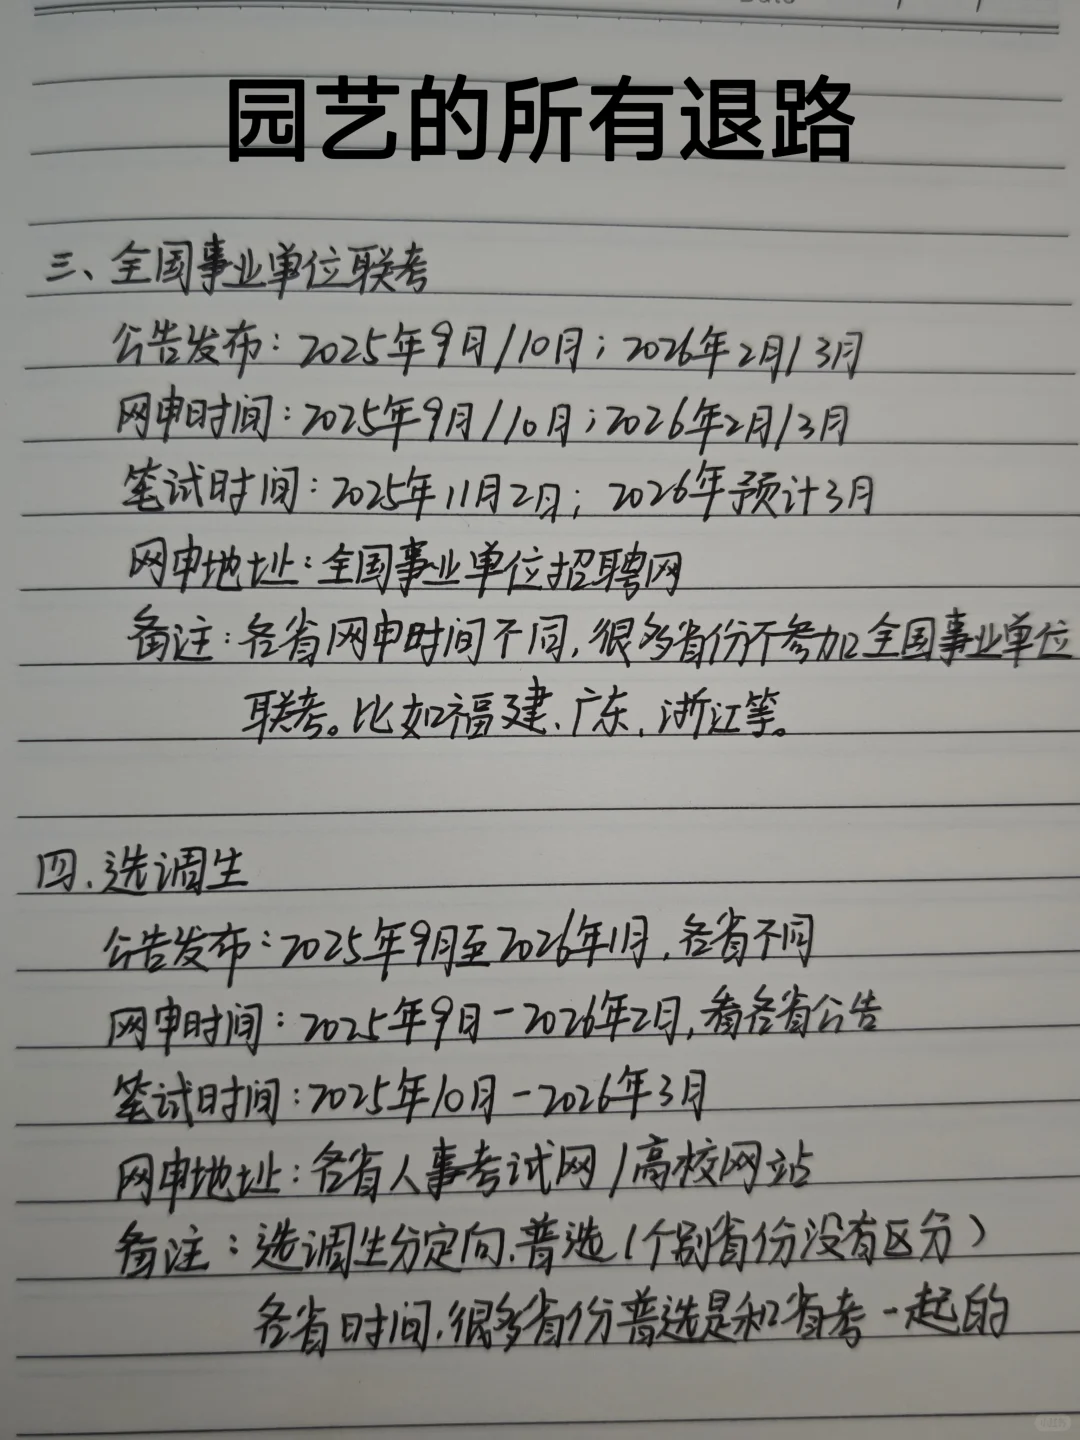 园艺的所有退路
三、全国事业单位联考
公告发布：2025年9月/10月；2026年2月/3月
网申时间：2025年9月/10月；2026年2月/3月
笔试时间：2025年11月2日；2026年预计3月
网申地址：全国事业单位招聘网
备注：各省网申时间不同，很多省份不参加全国事业单位
联考。比如福建、广东、浙江等。
四、选调生
公告发布：2025年9月至2026年1月，各省不同
网申时间：2025年9月-2026年2月，看各省公告
笔试时间：2025年10月-2026年3月
网申地址：各省人事考试网/高校网站
备注：选调生分定向、普选（个别省份没有区分）
各省时间，很多省份普选是和省考一起的